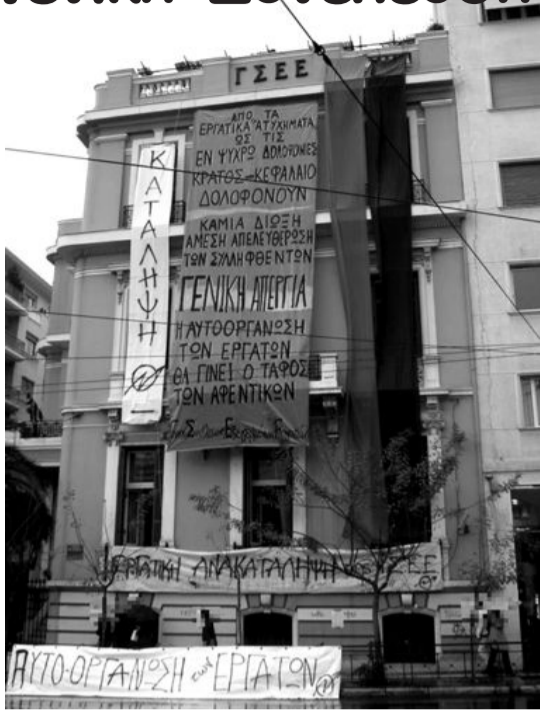 ΓΣΕΕ
ΚΑΤΑΛΗΨΗ
ΑΠΟ ΤΑ
ΕΡΓΑΤΙΚΑ ΑΤΥΧΗΜΑΤΑ
ΩΣ ΤΙΣ
ΕΝ ΨΥΧΡΩ ΔΟΛΟΦΟΝΙΕΣ
ΚΡΑΤΟΣ-ΚΕΦΑΛΑΙΟ
ΔΟΛΟΦΟΝΟΥΝ
ΚΑΜΙΑ ΔΙΩΞΗ
ΑΜΕΣΗ ΑΠΕΛΕΥΘΕΡΩΣΗ
ΤΩΝ ΣΥΛΛΗΦΘΕΝΤΩΝ
ΓΕΝΙΚΗ ΑΠΕΡΓΙΑ
Η ΑΥΤΟΟΡΓΑΝΩΣΗ
ΤΩΝ ΕΡΓΑΤΩΝ
ΘΑ ΓΙΝΕΙ Ο ΤΑΦΟΣ
ΤΩΝ ΑΦΕΝΤΙΚΩΝ
ΕΡΓΑΤΙΚΗ ΑΝΑΚΑΤΑΛΗΨΗ ΓΣΕΕ
ΑΥΤΟ-ΟΡΓΑΝΩΣΗ των ΕΡΓΑΤΩΝ